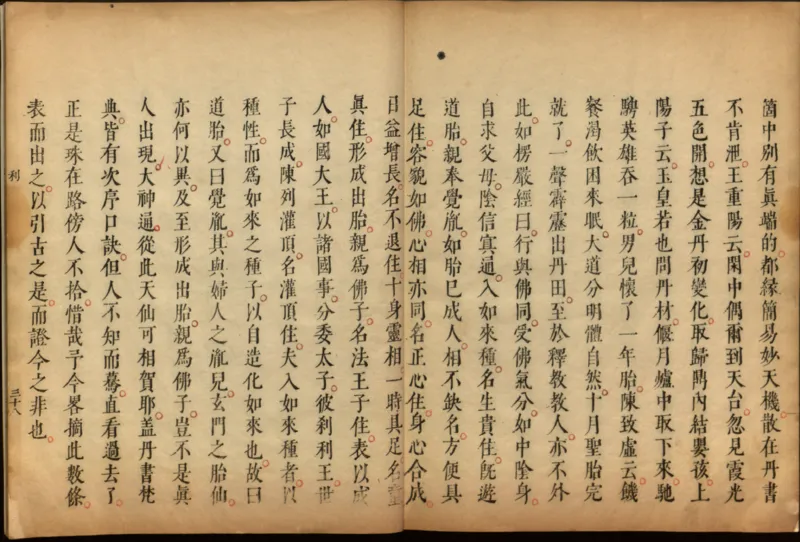 箇中別有眞端的都緣簡易妙天機散在丹書
不肯泄王重陽云閑中偶爾到天台忽見霞光
五色開想是金丹初變化取歸鼎內結嬰孩上
陽子云玉皇若也問丹材偃月爐中取下來馳
騁英雄吞一粒男兒懷了一年胎陳致虛云饑
餐渴飲困來眠大道分明體自然十月聖胎完
就了一聲霹靂出丹田至於釋教教人亦不外
此如楞嚴經曰行與佛同受佛氣分如中陰身
自求父母陰信冥通入如來種名生貴住旣遊
道胎親奉覺胤如胎已成人相不缺名方便具
足住容貌如佛心相亦同名正心住身心合成
日益增長名不退住十身靈相一時具足名童
眞住形成出胎親爲佛子名法王子住表以成
人如國大王以諸國事分委太子彼刹利王世
子長成陳列灌頂名灌頂住夫入如來種者以
種性而爲如來之種子以自造化如來也故曰
道胎又曰覺胤其與婦人之胤兒玄門之胎仙
亦何以異及至形成出胎親爲佛子豈不是眞
人出現大神通從此天仙可相賀耶盖丹書梵
典皆有次序口訣但人不知而驀直看過去了
正是珠在路傍人不拾惜哉予今畧摘此數條
表而出之以引古之是而證今之非也
利
三十八